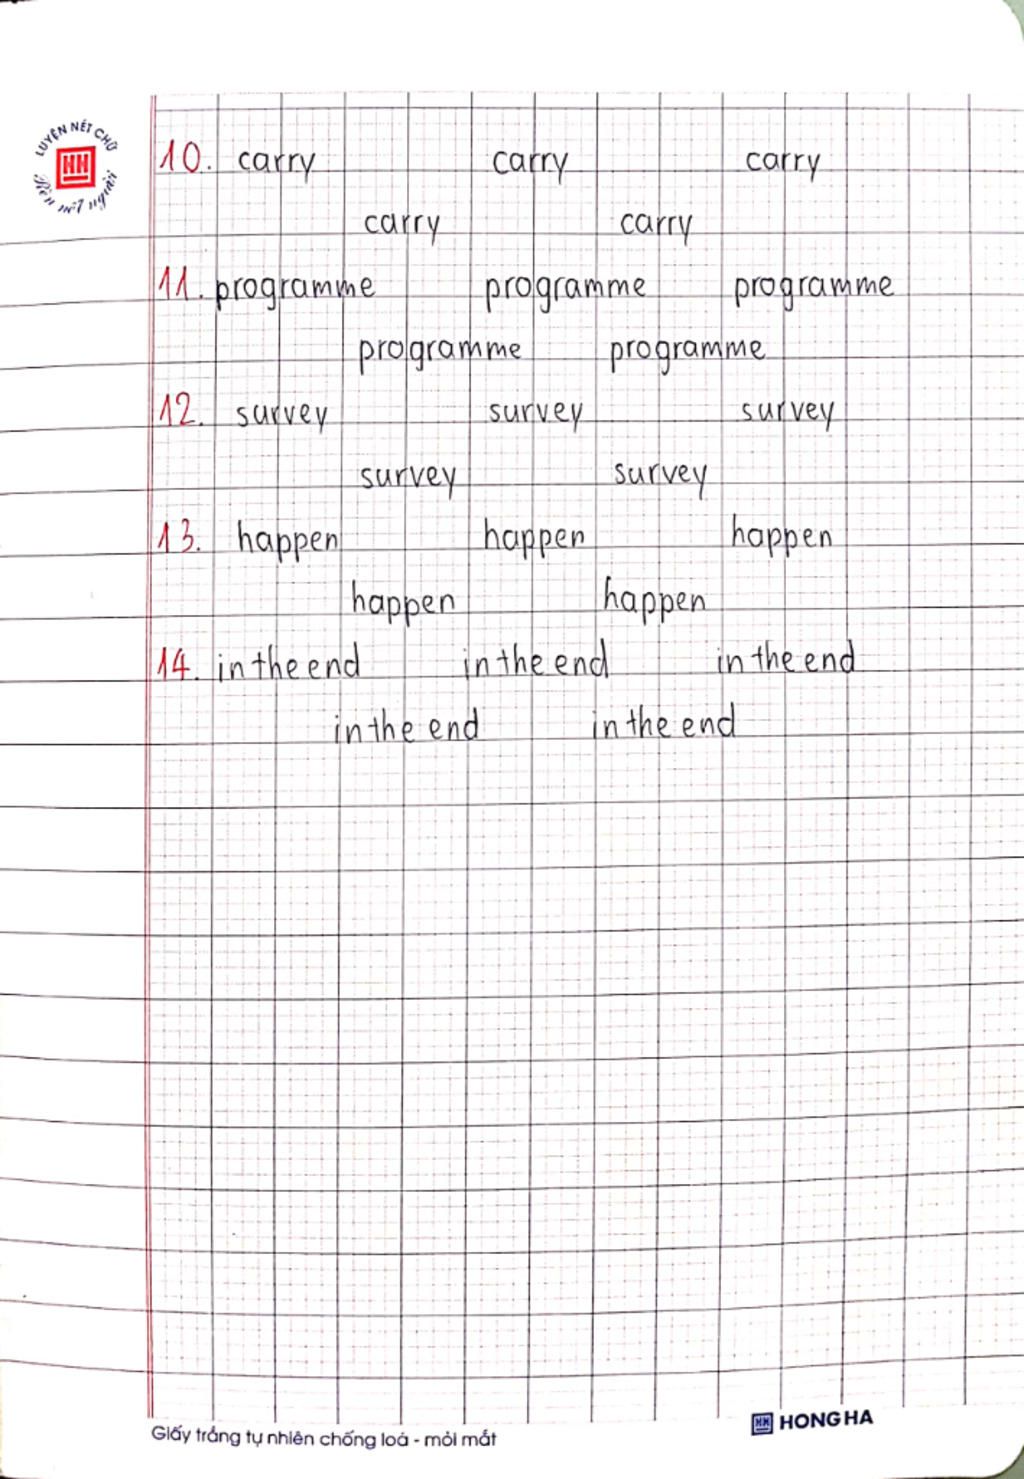 LUYỆN NÉT CHỮ
HH
Rèn nết người
10. carry carry carry
carry carry
11. programme programme programme
programme programme
12. survey survey survey
survey survey
13. happen happen happen
happen happen
14. in the end in the end in the end
in the end in the end
HH HONG HA
Giấy trắng tự nhiên chống loá - mỏi mắt